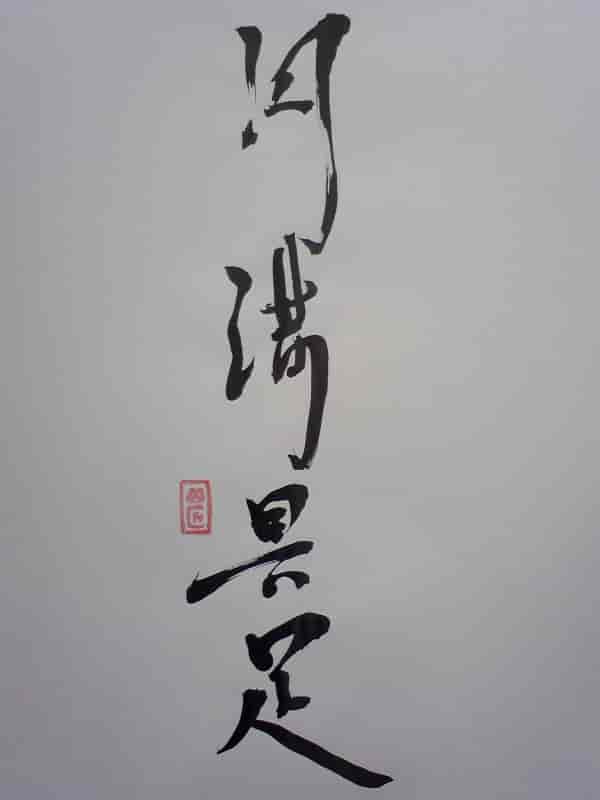 円満具足